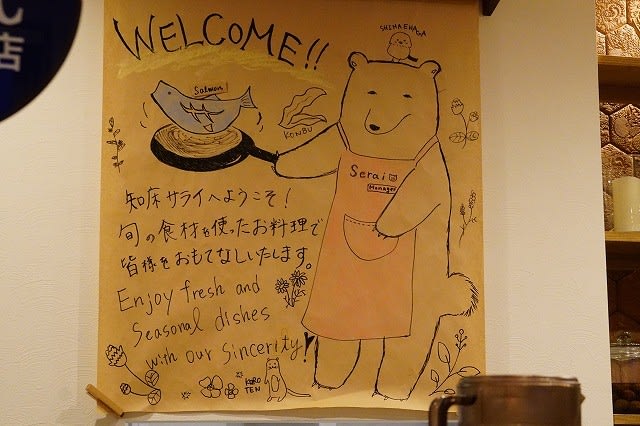 店
WELCOME!!
SHIMAENAGA
Salmon
KONBU
Serai
Manager
知床サライへようこそ!
旬の食材を使ったお料理で
皆様をおもてなしいたします。
Enjoy fresh and
Seasonal dishes
with our sincerity!
KURO
TEN